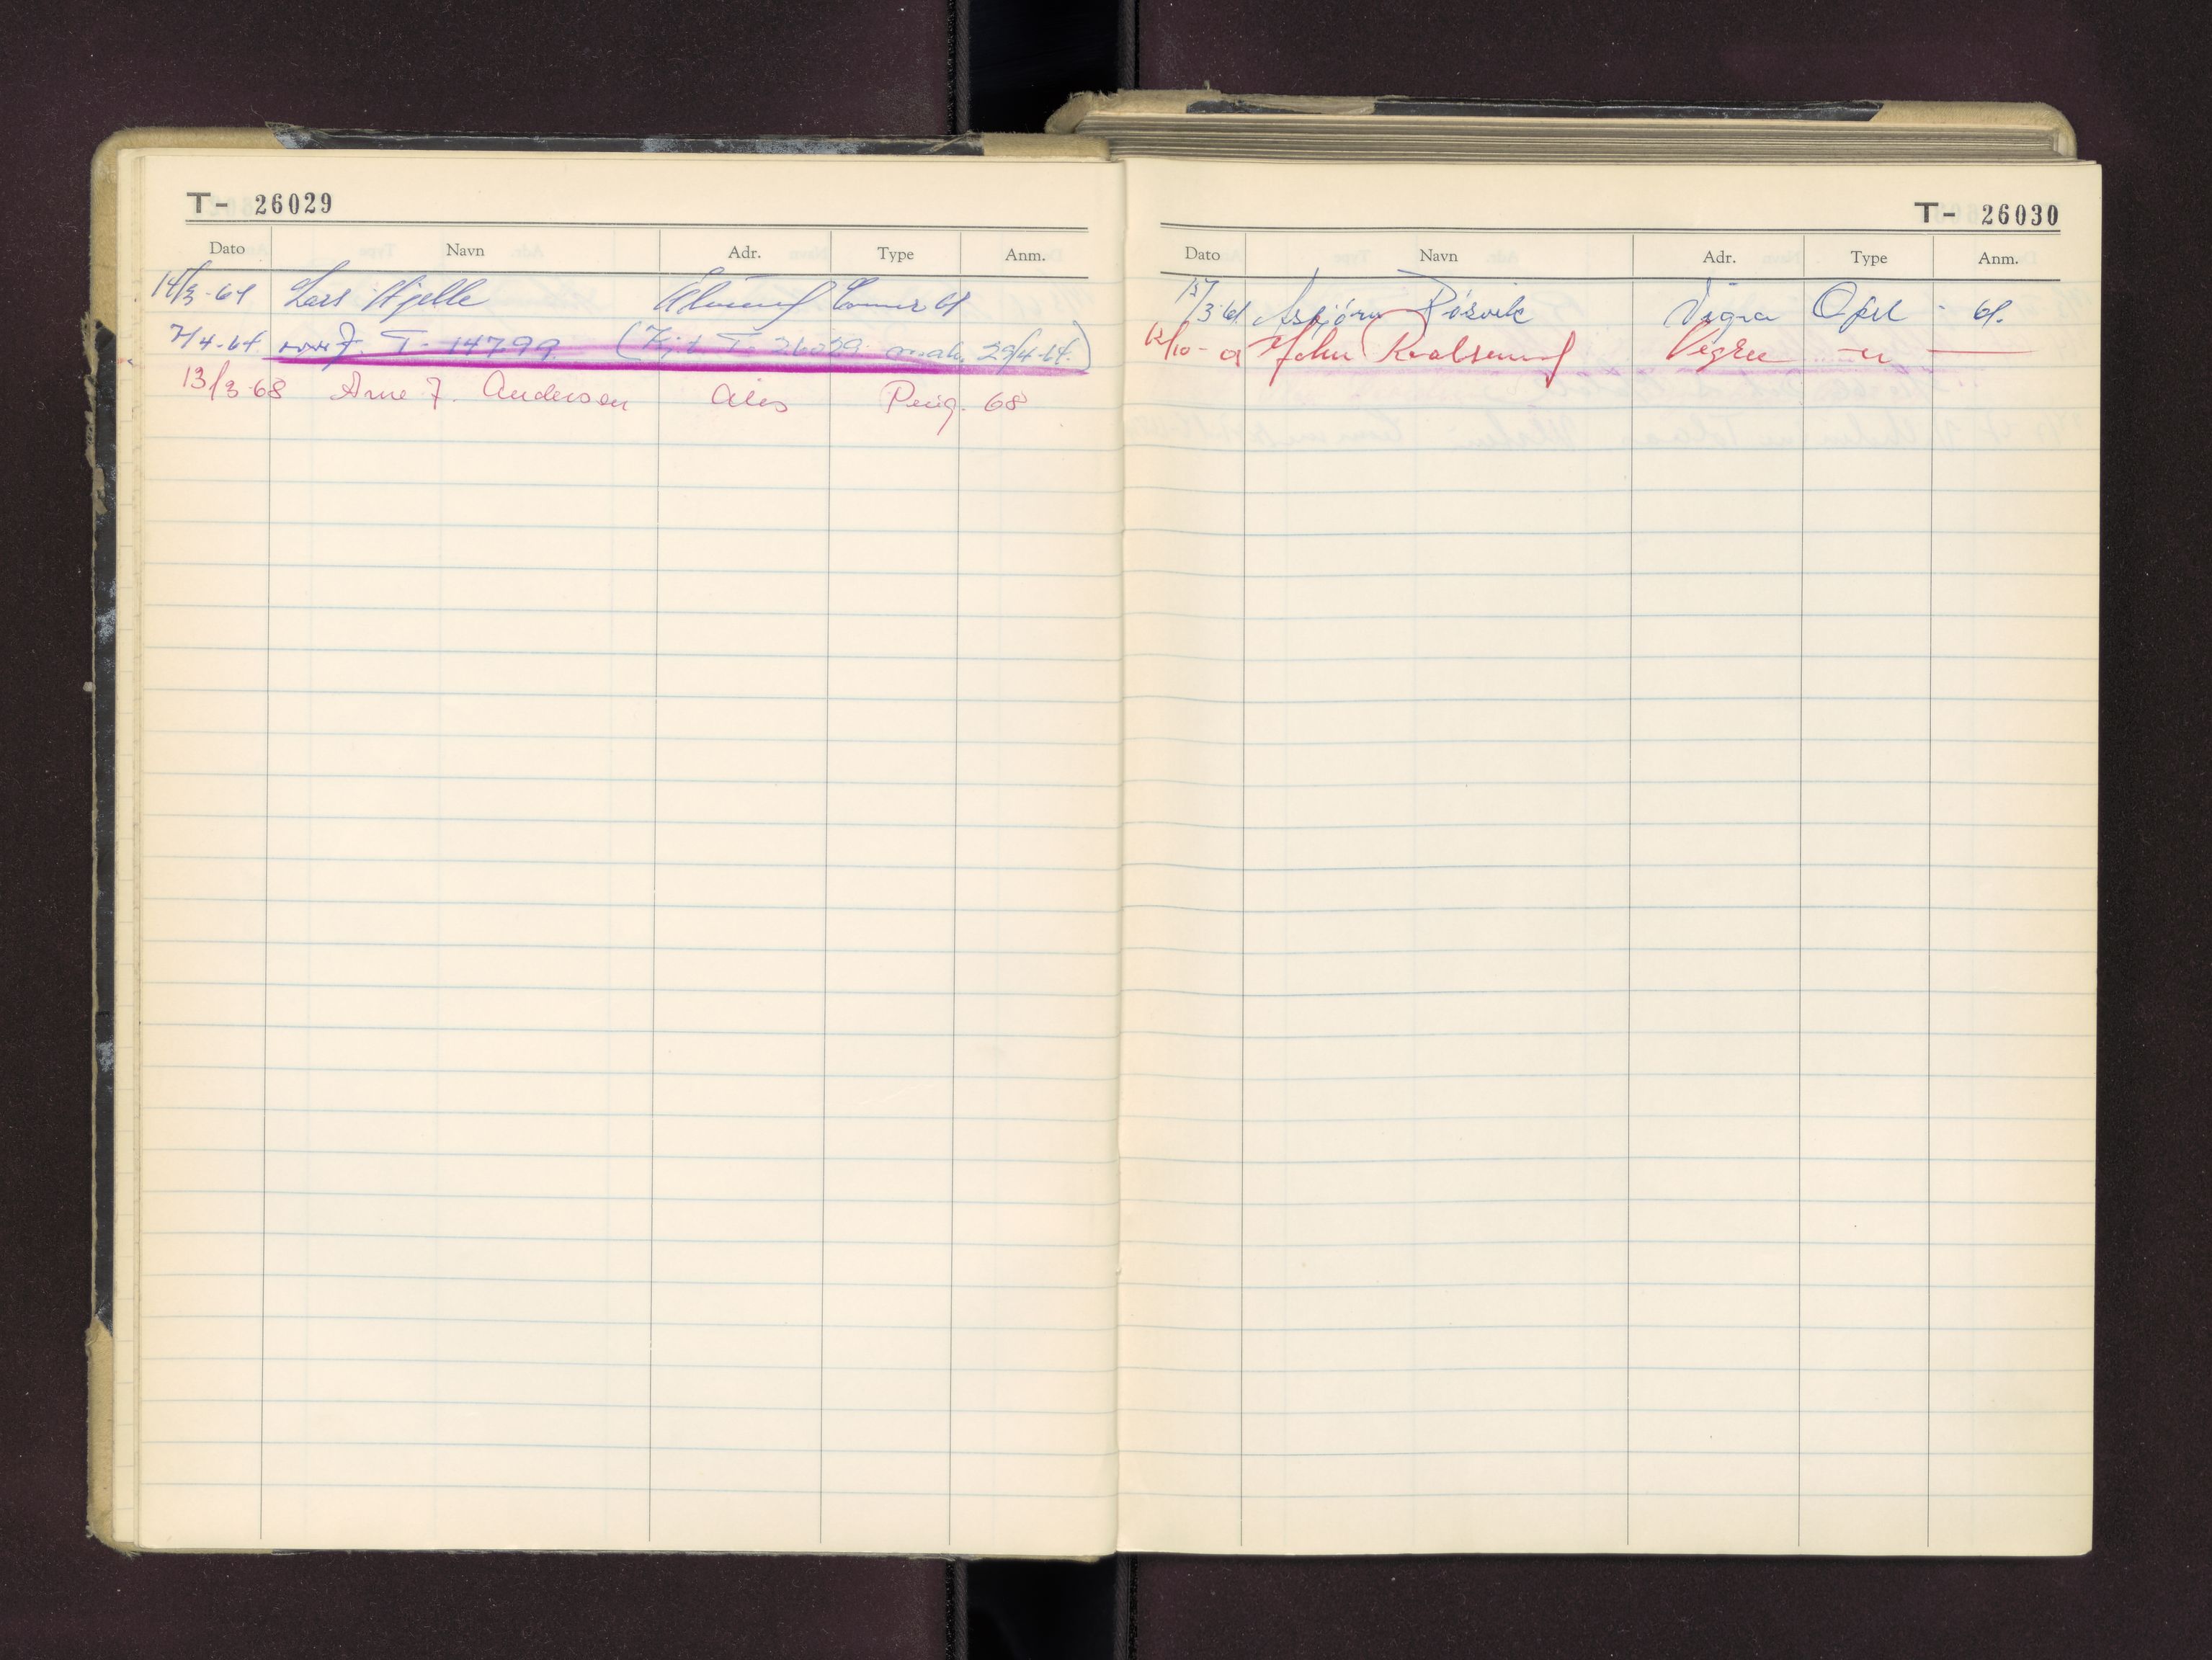 T- 26029
Dato Navn Adr. Type Anm.
14/3-61 Lars Hjelle Ålesund 61
7/4-64. T- 14799 (Kj.t. T- 26029 29/4-64.)
13/3-68 Arne F. Andersen Ales Peug. 68
T- 26030
Dato Navn Adr. Type Anm.
17/3-61 Asbjørn Røsvik Vigra Opel - 61.
12/10- John Roaldsnes Vigra -"- —